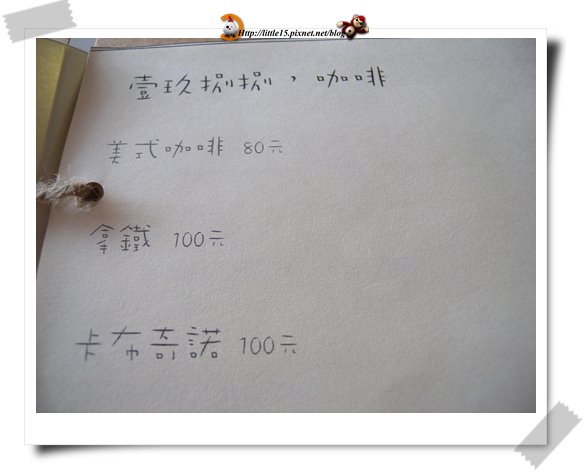 Http://little15.pixnet.net/blog
壹玖捌捌，咖啡
美式咖啡 80元
拿鐵 100元
卡布奇諾 100元